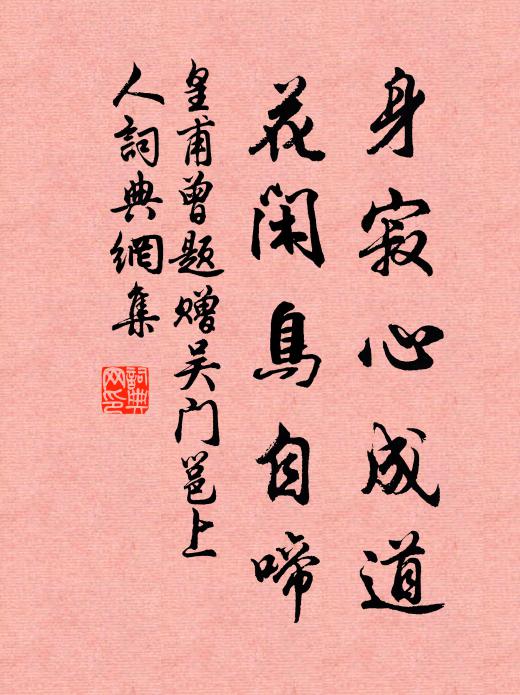 身寂心成道
花闲鳥自啼
皇甫曾题赠吴门邕上
人詞典網集
詞典网印